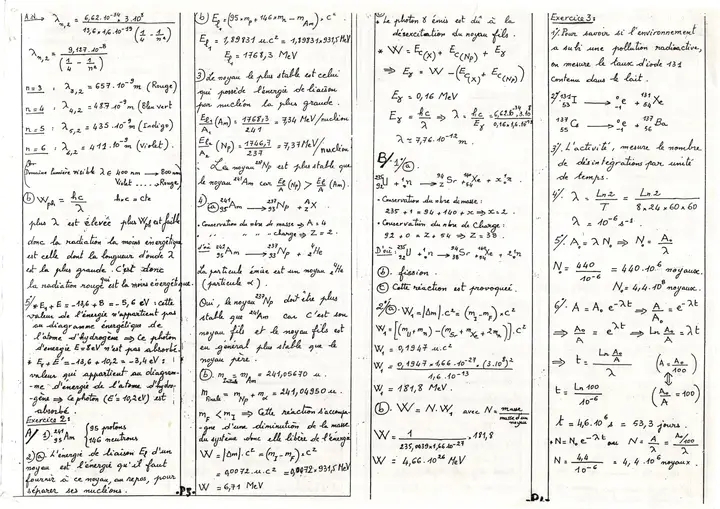 A.N → λn,2 = 6,62.10^-34 × 3.10^8 / 13,6×1,6.10^-19 (1/4 - 1/n²)
λn,2 = 9,127.10^-8 / (1/4 - 1/n²)
n=3 : λ3,2 = 657.10^-9 m (Rouge)
n=4 : λ4,2 = 487.10^-9 m (Bleu vert
n=5 : λ5,2 = 435.10^-9 m (Indigo)
n=6 : λ6,2 = 411.10^-9 m (Violet).
Domaine lumière visible λ ∈ 400 nm → 800 nm
Violet ..... Rouge
ⓑ Wph = hc/λ h.c = cte
plus λ est élevée plus Wph est faible
donc la radiation la moins énergétique
est celle dont la longueur d'onde λ
est la plus grande. C'est donc
la radiation rouge qui est la moins énergétique.
5/ * E1 + E = -13,6 + 8 = -5,6 eV : cette
valeur de l'énergie n'appartient pas
au diagramme énergétique de
l'atome d'hydrogène ⇒ Ce photon
d'énergie E=8eV n'est pas absorbé.
* E1 + E' = -13,6 + 10,2 = -3,4 eV :
valeur qui appartient au diagram-
-me d'énergie de l'atome d'hydro-
-gène ⇒ Ce photon (E'= 10,2 eV) est
absorbé.
Exercice 2:
A/ 1) 241 95 Am { 95 protons
146 neutrons
2) ⓐ L'énergie de liaison El d'un
noyau est l'énergie qu'il faut
fournir à ce noyau, au repos, pour
séparer ses nucléons.
ⓑ El1 = (95 mp + 146 mn - mAm).c²
El1 = 1,89831 u.c² = 1,89831×931,5 MeV
El1 = 1768,3 MeV
3) Le noyau le plus stable est celui
qui possède l'énergie de liaison
par nucléon la plus grande.
El1/A1 (Am) = 1768,3/241 = 7,34 MeV/nucléon
El2/A2 (Np) = 1746,7/237 = 7,37 MeV/nucléon
Le noyau 237 Np est plus stable que
le noyau 241 Am car El/A (Np) > El/A (Am).
4) ⓐ 241 95 Am → 237 93 Np + A Z X
. Conservation du nbre de masse ⇒ A = 4
" " " " charge ⇒ Z = 2.
D'où 241 95 Am → 237 93 Np + 4 2 He
La particule émise est un noyau 4 2 He
(particule α).
Oui, le noyau 237 Np doit être plus
stable que 241 Am car c'est son
noyau fils et le noyau fils est
en général plus stable que le
noyau père.
ⓑ. m Initiale = mAm = 241,05670 u.
m finale = mNp + mα = 241,04950 u.
mF < mI ⇒ Cette réaction s'accompa-
-gne d'une diminution de la masse
du système donc elle libère de l'énergie.
W = |Δm|.c² = (mI - mF).c²
= 0,0072.u.c² = 0,0072×931,5 MeV
W = 6,71 MeV
-P3-
ⓒ Le photon γ émis est dû à la
désexcitation du noyau fils.
* W = Ec(X) + Ec(Np) + Eγ
⇒ Eγ = W - (Ec(X) + Ec(Np))
Eγ = 0,16 MeV
Eγ = hc/λ ⇒ λ = hc/Eγ = 6,62.10^-34.3.10^8 / 0,16×1,6.10^-13
λ = 7,76.10^-12 m.
B/ 1°/ ⓐ.
235 92 U + 1 0 n → 94 Z Sr + 140 54 Xe + x 1 0 n
- Conservation du nbre de masse :
235 + 1 = 94 + 140 + x ⇒ x = 2.
- Conservation du nbre de Charge :
92 + 0 = Z + 54 ⇒ Z = 38.
D'où 235 92 U + 1 0 n → 94 38 Sr + 140 54 Xe + 2 1 0 n
ⓑ. fission.
ⓒ Cette réaction est provoquée.
2°/ ⓐ. W1 = |Δm|.c² = (mI - mF).c²
W1 = [(mU + mn) - (mSr + mXe + 2mn)].c²
W1 = 0,1947 u.c²
W1 = 0,1947 × 1,66.10^-27 . (3.10^8)² / 1,6.10^-13
W1 = 181,8 MeV.
ⓑ. W = N.W1 avec N = masse / masse d'un noyau
W = 1 / 235,0439×1,66.10^-27 . 181,8
W = 4,66.10^26 MeV
Exercice 3:
1°/ Pour savoir si l'environnement
a subi une pollution radioactive,
on mesure le taux d'iode 131
contenu dans le lait.
2°/ 131 53 I → 0 -1 e + 131 54 Xe
137 55 Cs → 0 -1 e + 137 56 Ba
3°/ L'activité, mesure le nombre
de désintégrations par unité
de temps.
4°/ λ = Ln2/T = Ln2 / 8×24×60×60
λ = 10^-6 s^-1.
5°/ A0 = λ N0 ⇒ N0 = A0/λ
N0 = 440/10^-6 = 440.10^6 noyaux.
N0 = 4,4.10^8 noyaux.
6°/ A = A0 e^-λt ⇒ A/A0 = e^-λt
⇒ A0/A = e^λt ⇒ Ln A0/A = λt
⇒ t = Ln A0/A / λ (A = A0/100)
t = Ln 100 / 10^-6 (A0/A = 100)
t = 4,6.10^6 s = 53,3 jours.
* N = N0 e^-λt ou N = A/λ = A0/100 / λ
N = 4,4/10^-6 = 4,4.10^6 noyaux.